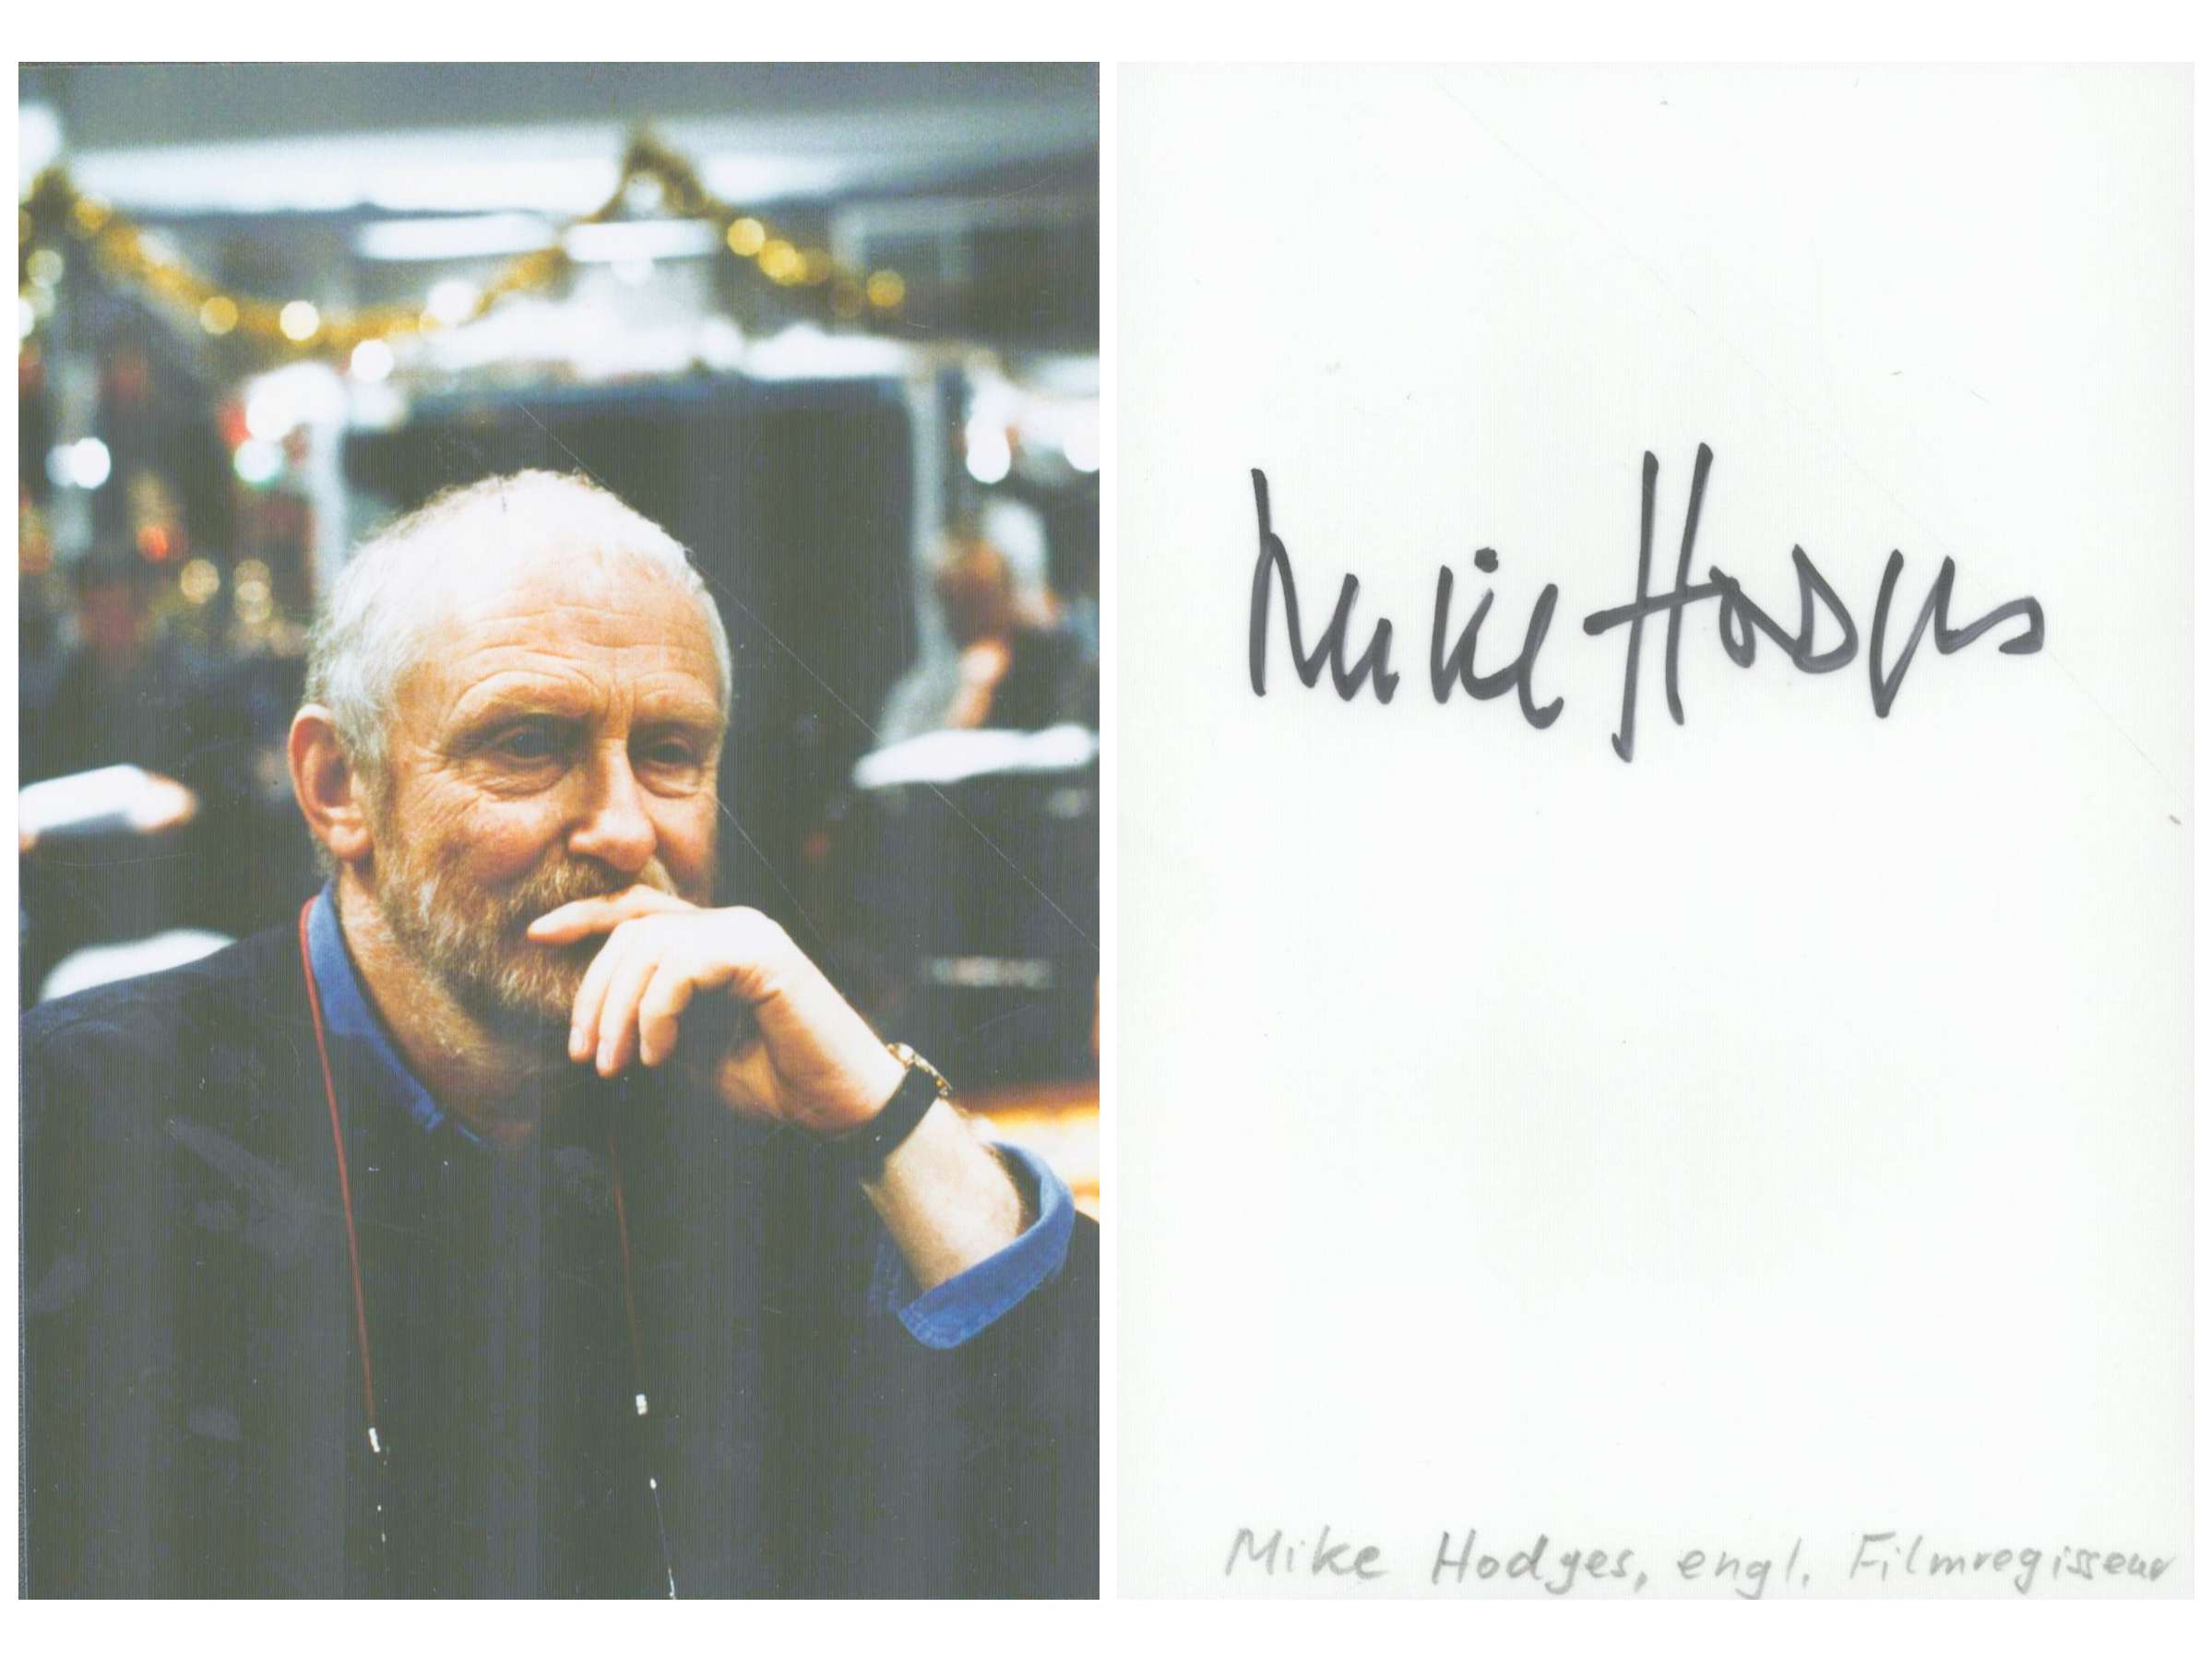 Mike Hodges
Mike Hodges, engl. Filmregisseur